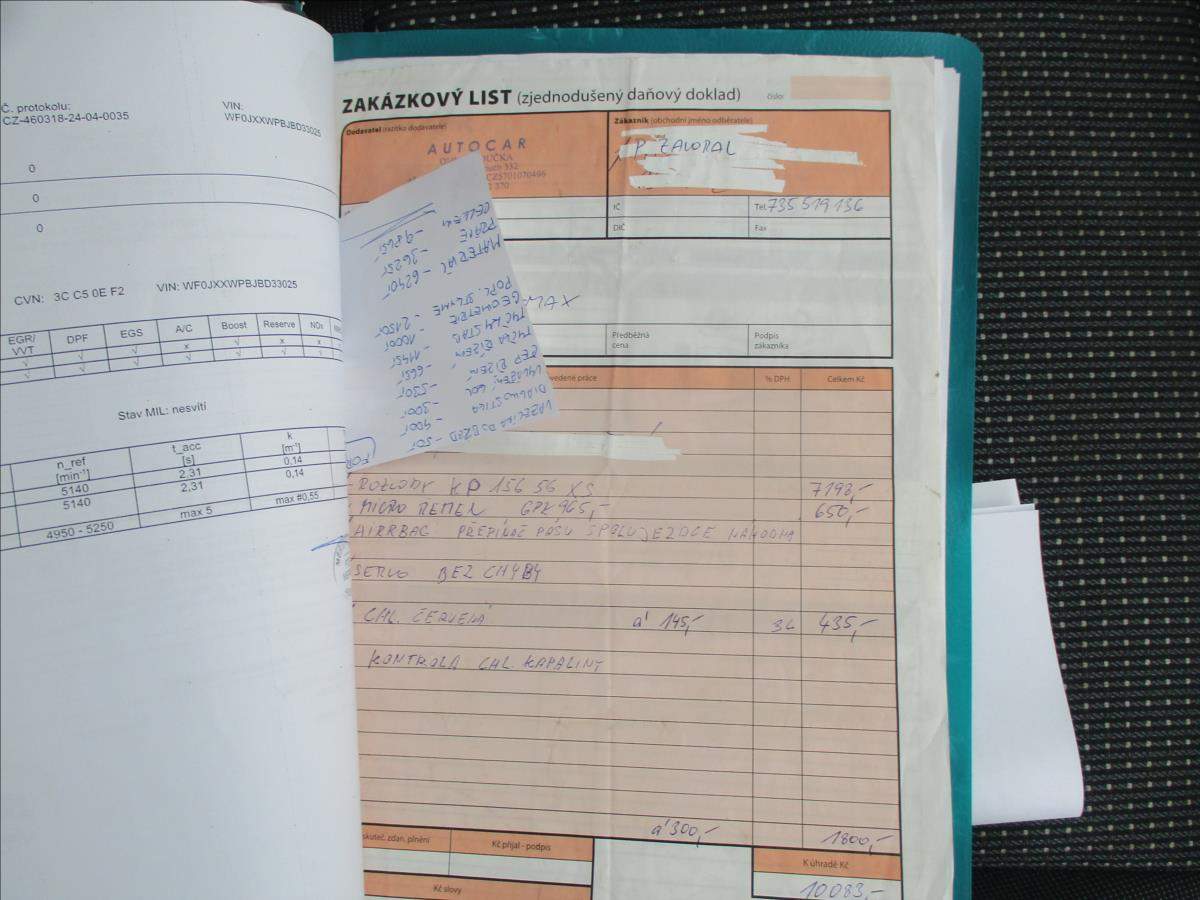 Č. protokolu:
CZ-460318-24-04-0035
VIN:
WF0JXXWPBJBD33025
0
0
0
CVN: 3C C5 0E F2 VIN: WF0JXXWPBJBD33025
EGR/VVT DPF EGS A/C Boost Reserve NOx
√ √ x √ x x
√ √ √ x √ √ √
Stav MIL: nesvítí
n_ref [min⁻¹] t_acc [s] k [m⁻¹]
5140 2,31 0,14
5140 2,31 0,14
4950 - 5250 max 5 max #0,55
ZAKÁZKOVÝ LIST (zjednodušený daňový doklad)
číslo:
Dodavatel (razítko dodavatele)
AUTOCAR
332
CZ5701070496
370
Zákazník (obchodní jméno odběratele)
P. ZAVORAL
IČ
Tel. 735 519 136
DIČ
Fax
MAX
Předběžná cena
Podpis zákazníka
vedené práce
% DPH
Celkem Kč
DIAGNOSTIKA - 400,-
- 300,-
ČEP ŘÍZENÍ - 530,-
TYČKA ŘÍZEN - 665,-
TYČKY STAB - 1145,-
GEOMETRIE - 1000,-
- 2150,-
MATERIÁL - 6240,-
PRÁCE - 3625,-
CELKEM - 9865,-
ROZVODY KP 156 56 XS 7198,-
MICRO ŘEMEN 6PK 965,- 650,-
AIRRBAG PŘEPÍNAČ PÁSU SPOLUJEZDCE NÁHODNÁ
SERVO BEZ CHYBY
CHL. ČERVENÁ á 145,- 3L 435,-
KONTROLA CHL KAPALINY
á 300,- 1800,-
skuteč. zdan. plnění
Kč přijal - podpis
K úhradě Kč
Kč slovy
10083,-